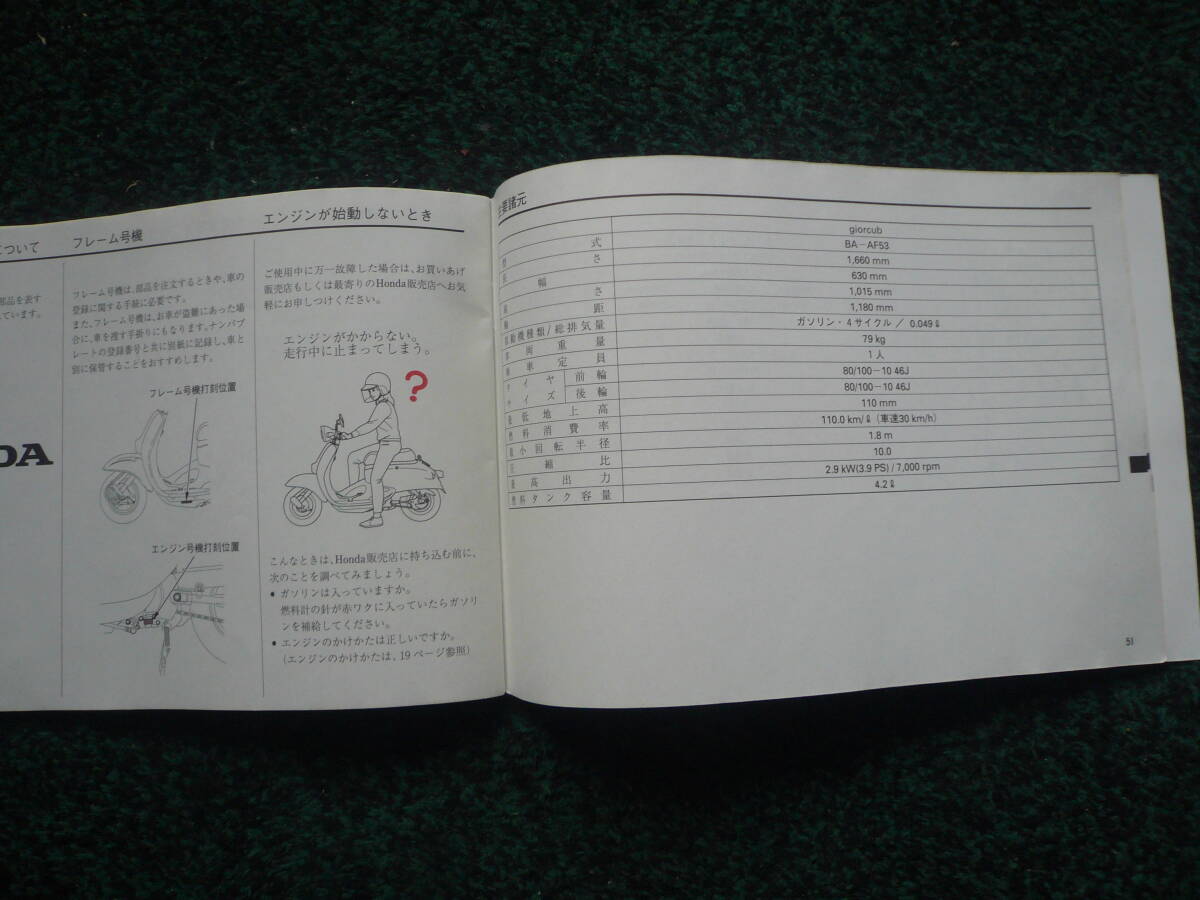 ついて
部品を表す
ています。
DA
フレーム号機
フレーム号機は、部品を注文するときや、車の
登録に関する手続に必要です。
また、フレーム号機は、お車が盗難にあった場
合に、車を捜す手掛りにもなります。ナンバプ
レートの登録番号と共に別紙に記録し、車と
別に保管することをおすすめします。
フレーム号機打刻位置
エンジン号機打刻位置
エンジンが始動しないとき
ご使用中に万一故障した場合は、お買いあげ
販売店もしくは最寄りのHonda販売店へお気
軽にお申しつけください。
エンジンがかからない。
走行中に止まってしまう。
?
こんなときは、Honda販売店に持ち込む前に、
次のことを調べてみましょう。
• ガソリンは入っていますか。
燃料計の針が赤ワクに入っていたらガソリ
ンを補給してください。
• エンジンのかけかたは正しいですか。
(エンジンのかけかたは、19ページ参照)
主要諸元
giorcub
式 BA-AF53
さ 1,660 mm
幅 630 mm
さ 1,015 mm
距 1,180 mm
原動機種類/総排気量 ガソリン・4サイクル / 0.049ℓ
車両重量 79 kg
乗車定員 1人
タイヤサイズ 前輪 80/100-10 46J
後輪 80/100-10 46J
最低地上高 110 mm
燃料消費率 110.0 km/ℓ (車速30 km/h)
最小回転半径 1.8 m
圧縮比 10.0
最高出力 2.9 kW(3.9 PS) / 7,000 rpm
燃料タンク容量 4.2ℓ
51